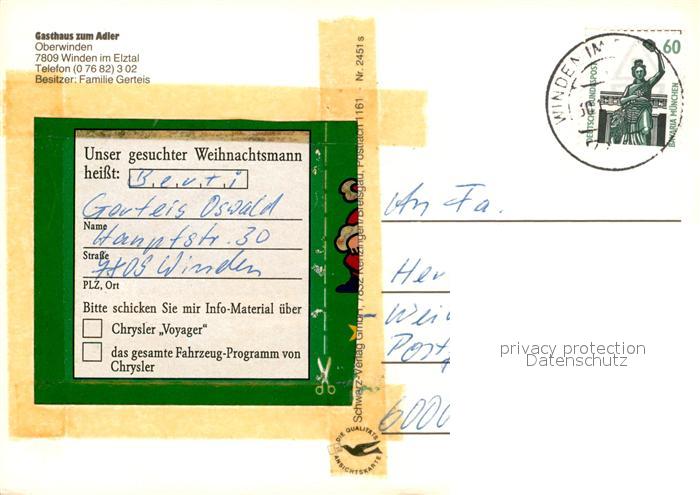 Gasthaus zum Adler
Oberwinden
7809 Winden im Elztal
Telefon (0 76 82) 3 02
Besitzer: Familie Gerteis
Unser gesuchter Weihnachtsmann
heißt: Berti
Gerteis Oswald
Name
Hauptstr. 30
Straße
7809 Winden
PLZ, Ort
Bitte schicken Sie mir Info-Material über
Chrysler „Voyager"
das gesamte Fahrzeug-Programm von
Chrysler
Schwarz-Verlag GmbH, 7832 Kenzingen/Breisgau, Postfach 1161 · Nr. 2451 s
DIE QUALITÄTS
ANSICHTSKARTE
WINDEN IM
60
DEUTSCHE BUNDESPOST
BAVARIA MÜNCHEN
An Fa.
Her
Wei
Post
6000
privacy protection
Datenschutz